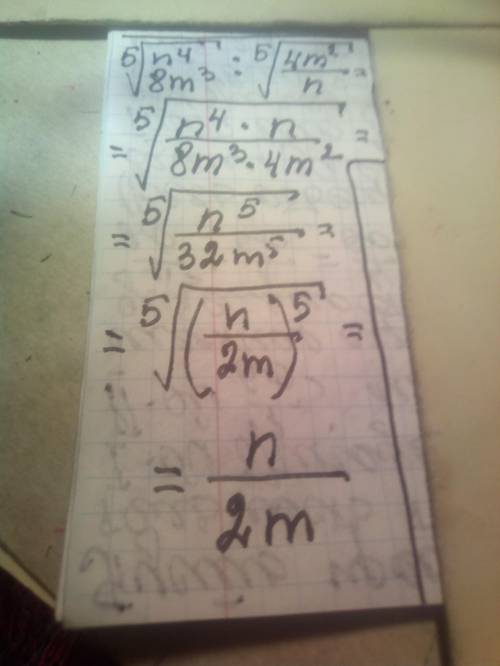 ⁵√(n⁴/8m³) : ⁵√(4m²/n) =
= ⁵√(n⁴ · n / 8m³ · 4m²) =
= ⁵√(n⁵/32m⁵) =
= ⁵√(n/2m)⁵ =
= n/2m